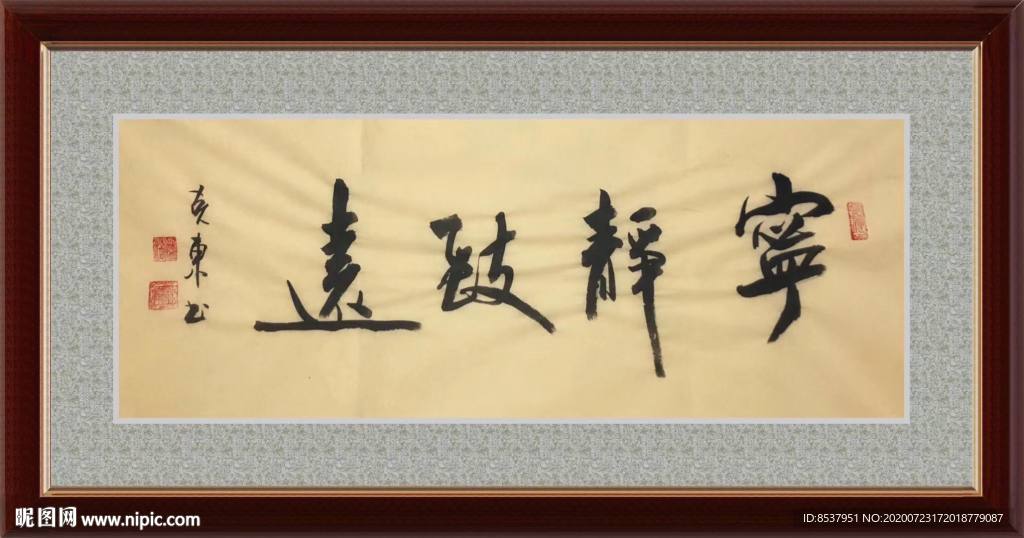 寧靜致遠
克東书
昵图网 www.nipic.com
ID:8537951 NO:20200723172018779087